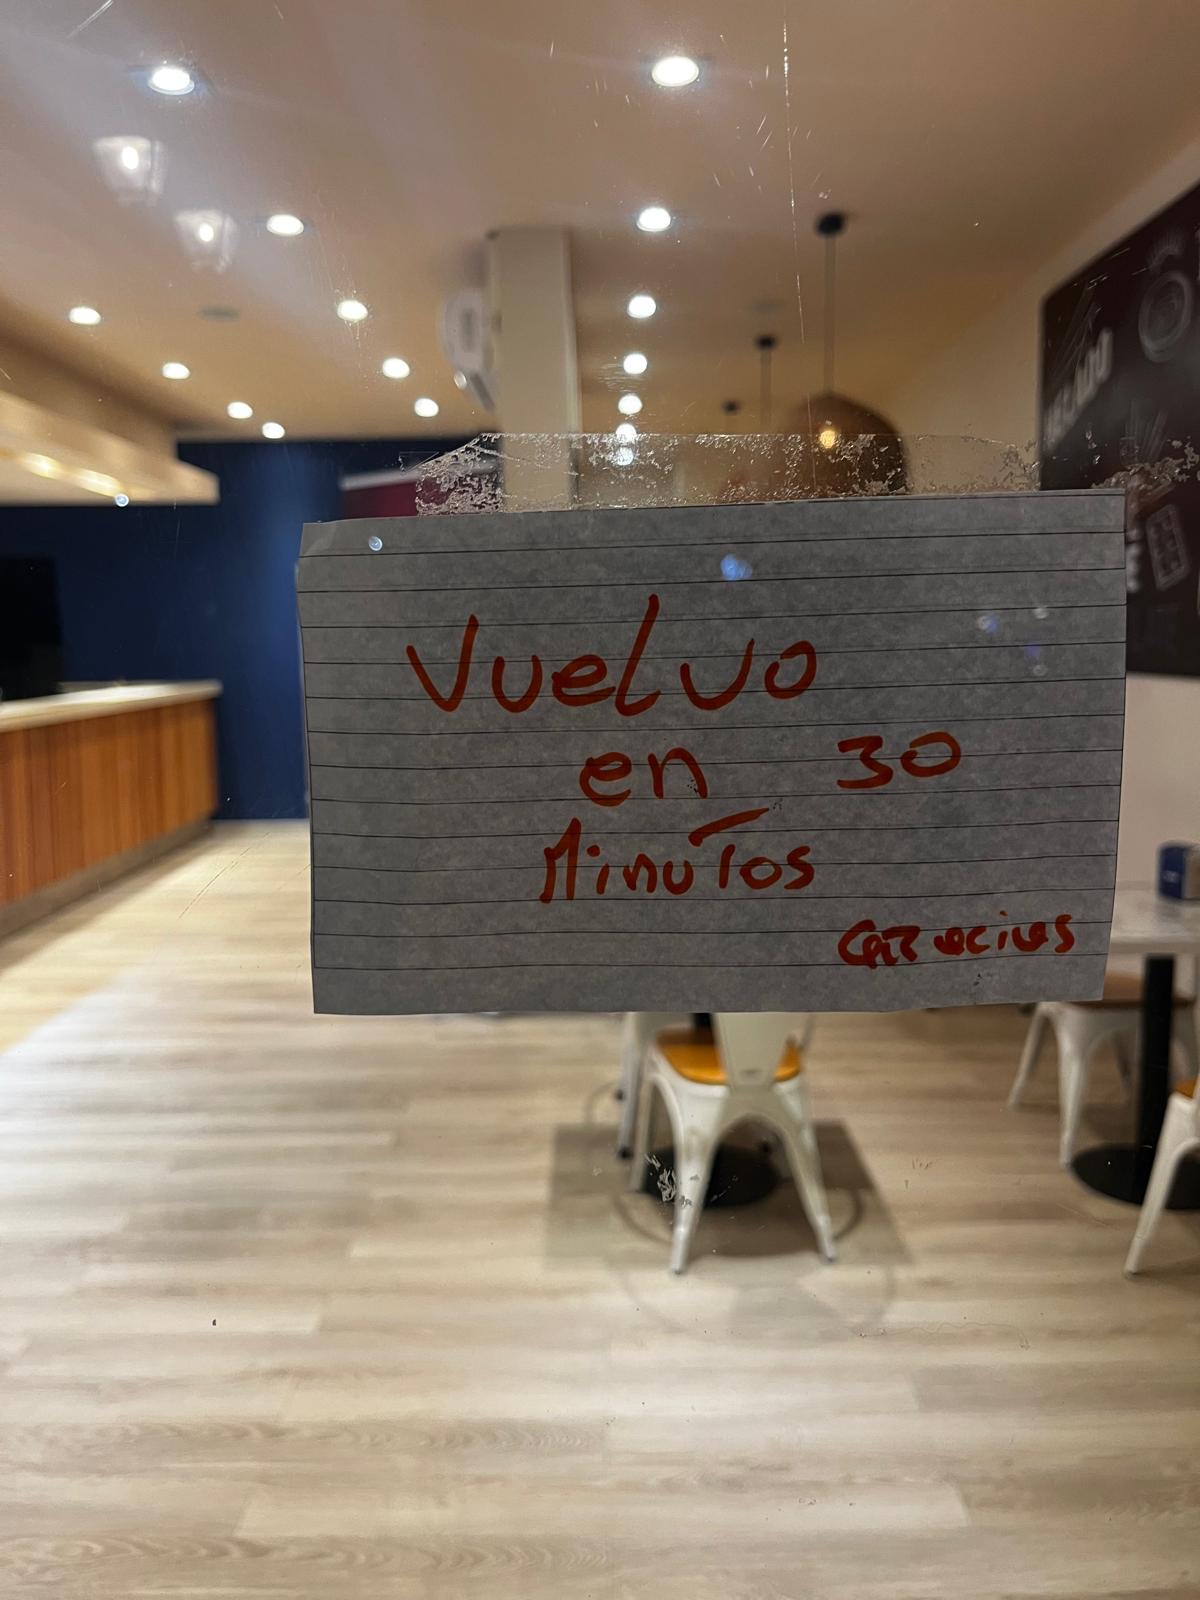 Vuelvo
en 30
Minutos
Gracias